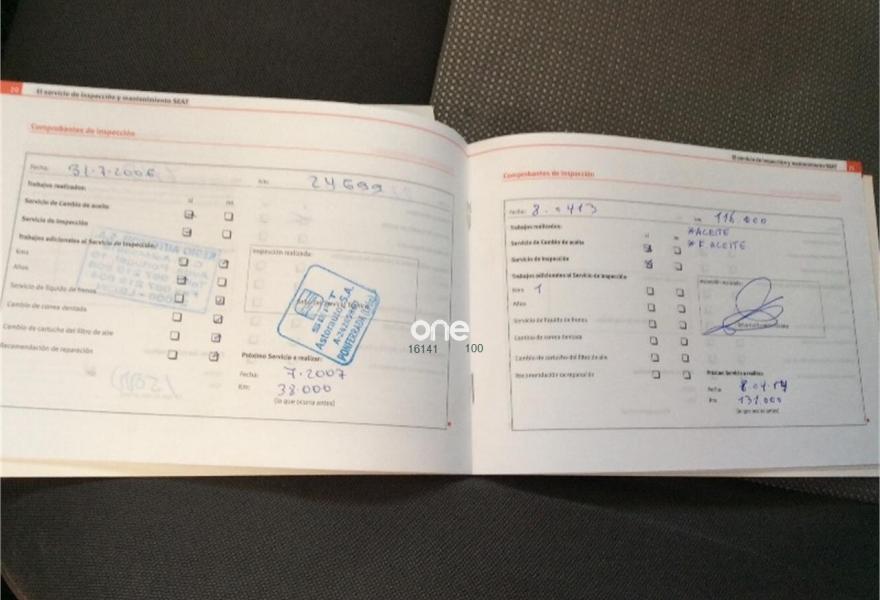 20 El servicio de inspección y mantenimiento SEAT
Comprobantes de inspección
Fecha: 31-7-2006 Km: 24699
Trabajos realizados:
sí no
Servicio de Cambio de aceite
Servicio de Inspección
Trabajos adicionales al Servicio de Inspección:
Kms
Años
Servicio de líquido de frenos
Cambio de correa dentada
Cambio de cartucho del filtro de aire
Recomendación de reparación
Inspección realizada:
SEAT
Astorauto S.A.
PONFERRADA
Próximo Servicio a realizar:
Fecha: 7-2007
Km: 38.000
(lo que ocurra antes)
El servicio de inspección y mantenimiento SEAT 21
Comprobantes de inspección
Fecha: 8.0413 Km: 116.000
Trabajos realizados:
*ACEITE
sí no
Servicio de Cambio de aceite
*F ACEITE
Servicio de Inspección
Trabajos adicionales al Servicio de Inspección
1
Años
Servicio de líquido de frenos
Cambio de correa dentada
Cambio de cartucho del filtro de aire
Recomendación de reparación
Próximo Servicio a realizar:
Fecha 8.04.14
Km 131.000
(lo que ocurra antes)
one
16141 100